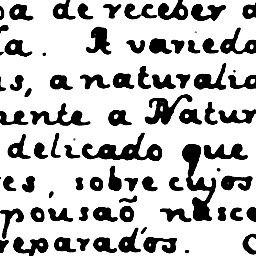 pa de receber a
la. A varieda
is, a naturalid
mente a Natur
delicado que
res, sobre cujos
pousaõ nasce
reparados. O